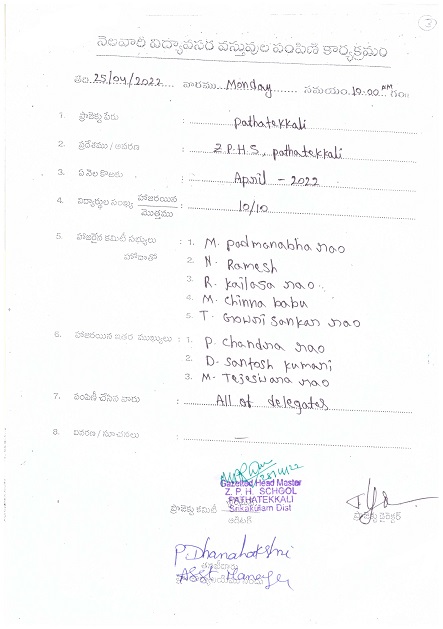 3
నెలవారీ విద్యావసర వస్తువుల పంపిణీ కార్యక్రమం
తేది. 25/04/2022 వారము Monday సమయం. 10.00 AM గం॥
1. ప్రాజెక్టు పేరు : Pathatekkali
2. ప్రదేశము / ఆవరణ : Z.P.H.S, pathatekkali
3. ఏ నెల కొరకు : April - 2022
4. విద్యార్థుల సంఖ్య హాజరయిన / మొత్తము : 10/10
5. హాజరైన కమిటీ సభ్యులు : 1. M. padmanabha rao
హోదాతో 2. N. Ramesh
3. R. Kailasa rao
4. M. Chinna babu
5. T. Gowri Sankar rao
6. హాజరయిన ఇతర ముఖ్యులు : 1. P. Chandra rao
2. D. Santosh kumari
3. M. Tejeswara rao
7. పంపిణీ చేసిన వారు : All of delegates
8. వివరణ / సూచనలు : —
Gazetted Head Master
Z. P. H. SCHOOL
PATHATEKKALI
Srikakulam Dist
ప్రాజెక్టు కమిటీ
ఆడిటర్
ప్రాజెక్టు డైరెక్టర్
P Dhanalakshmi
Asst Manager